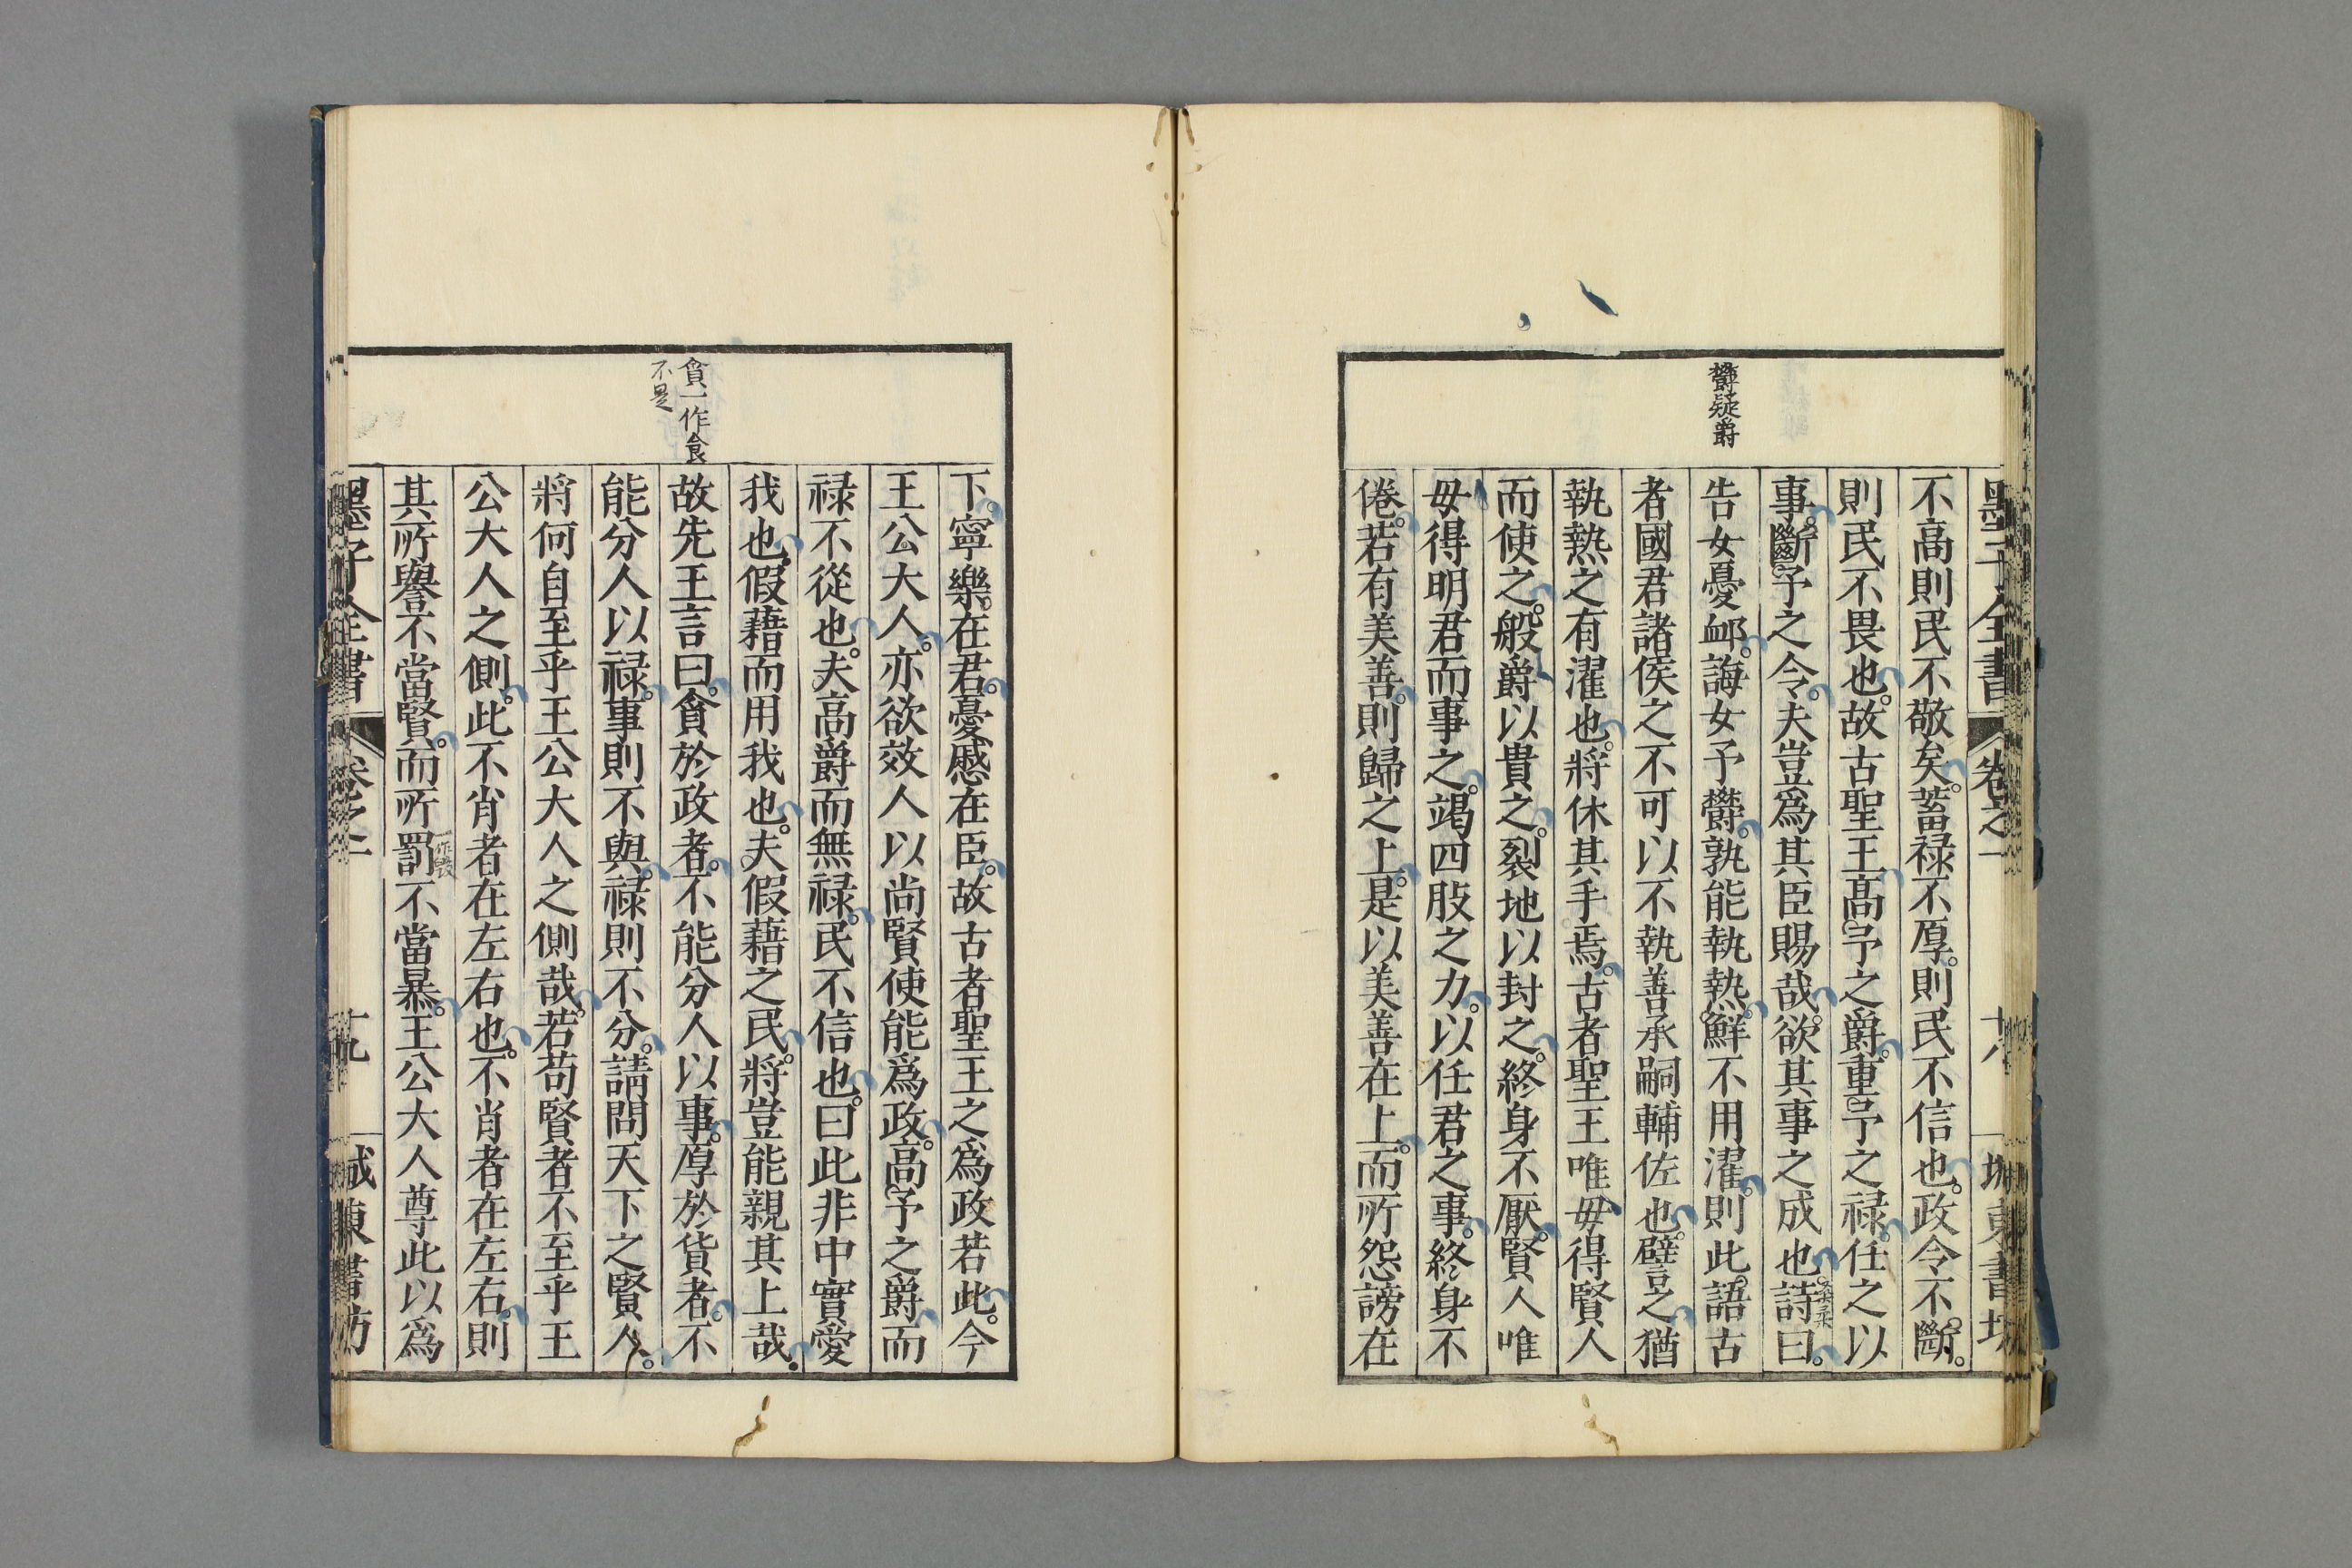 墨子全書 卷之一 十八 城東書坊
欝疑爵
不高則民不敬矣。蓄禄不厚。則民不信也。政令不斷。
則民不畏也。故古聖王高予之爵。重予之禄。任之以
事。斷予之令。夫豈爲其臣賜哉。欲其事之成也。詩桑柔曰。
告女憂卹。誨女予欝。孰能執熱。鮮不用濯。則此語古
者國君諸侯之不可以不執善承嗣輔佐也。譬之猶
執熱之有濯也。將休其手焉。古者聖王唯毋得賢人
而使之。般爵以貴之。裂地以封之。終身不厭。賢人唯
毋得明君而事之。竭四肢之力。以任君之事。終身不
倦。若有美善。則歸之上。是以美善在上。而所怨謗在
貪一作食
不是
下。寧樂。在君。憂慼在臣。故古者聖王之爲政若此。今
王公大人。亦欲效人以尚賢使能爲政。高予之爵而
禄不從也。夫高爵而無禄。民不信也。曰此非中實愛
我也。假藉而用我也。夫假藉之民。將豈能親其上哉。
故先王言曰。貪於政者。不能分人以事。厚於貨者。不
能分人以禄。事則不與。禄則不分。請問天下之賢人。
將何自至乎王公大人之側哉。若苟賢者不至乎王
公大人之側。此不肖者在左右也。不肖者在左右。則
其所譽不當賢。而所罰一作毀不當暴。王公大人尊此以爲
墨子全書 卷之一 十九 城東書坊